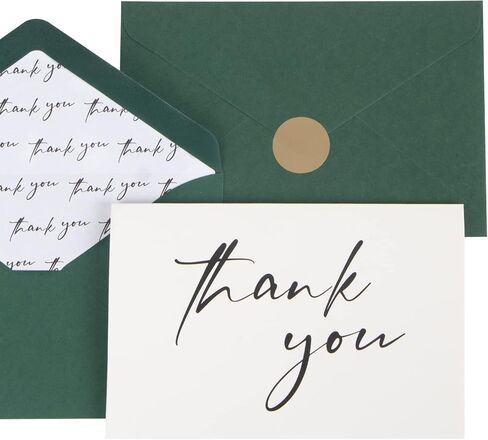 thank yo
thank you thank
thank you thank y
thank you thank you
thank you thank
you thank you
thank
you